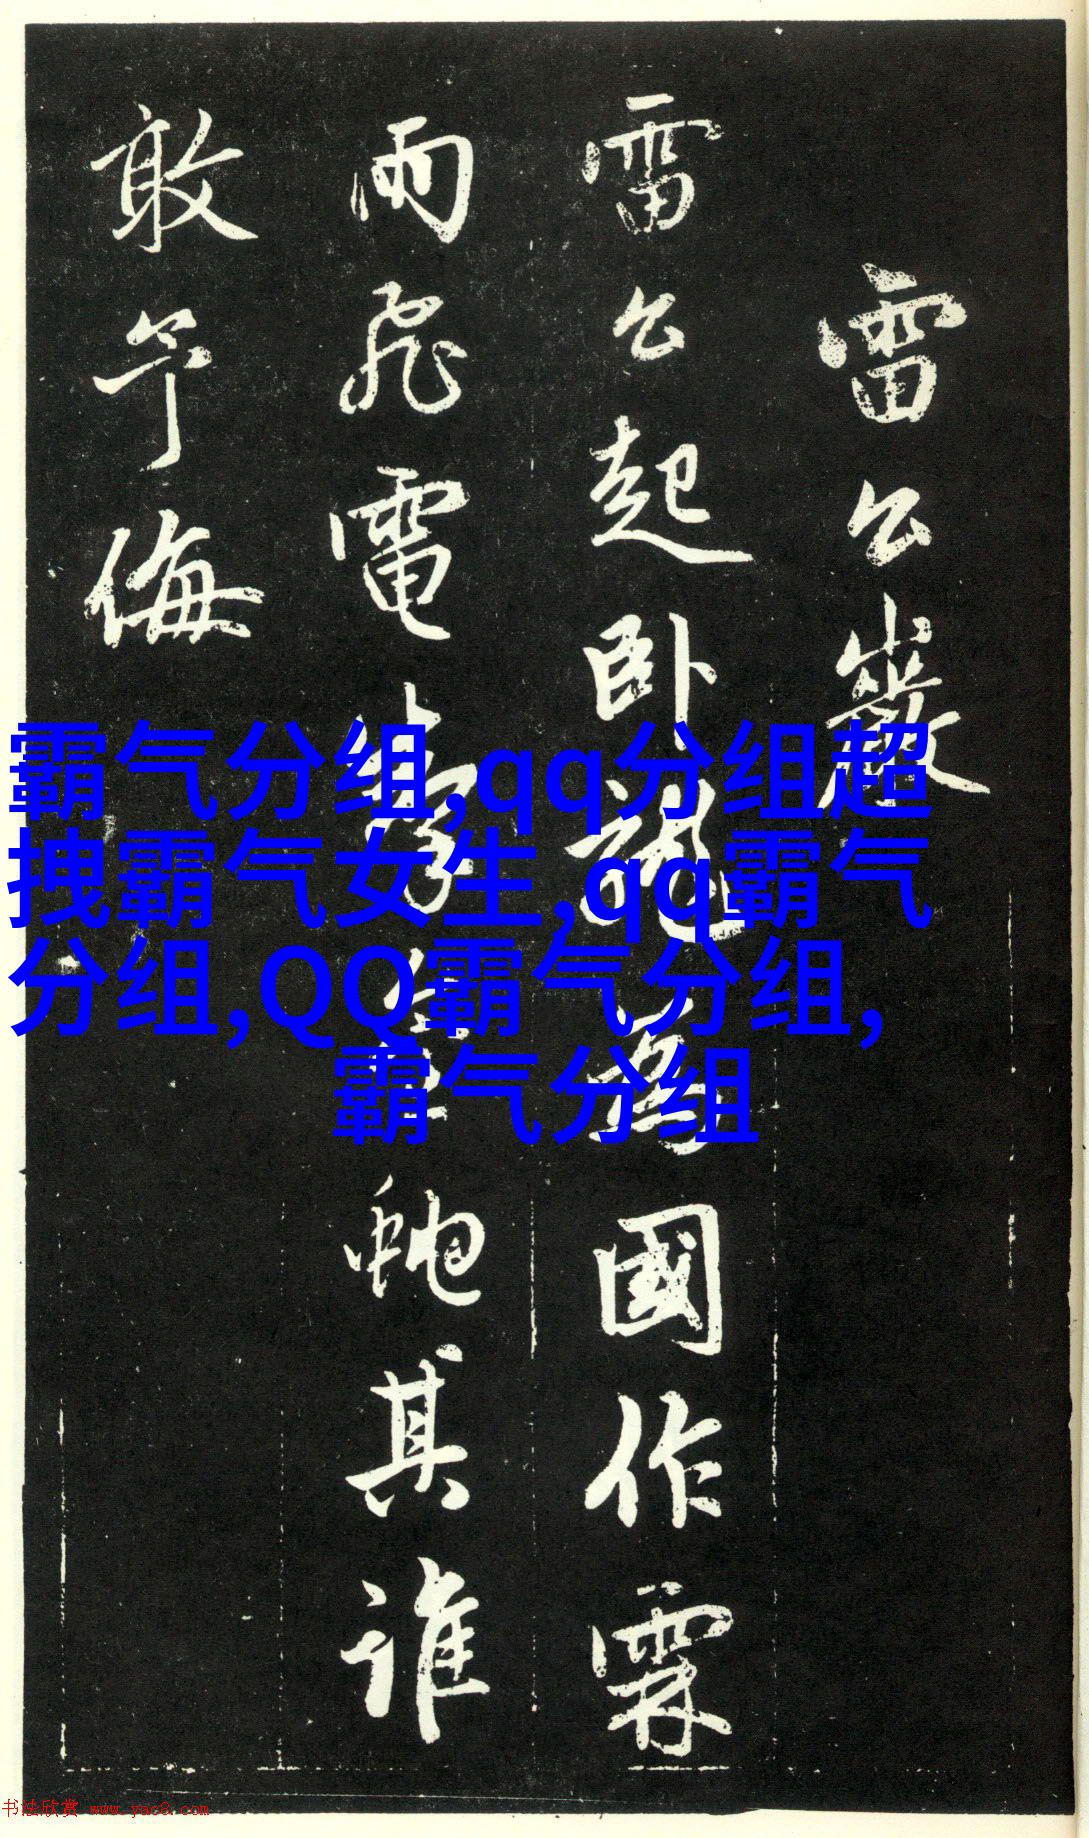 雷公巖
雷公起卧龍為國作霖
雨飛電掣金虵其誰
敢予侮
霸气分组,qq分组超
拽霸气女生,qq霸气
分组,QQ霸气分组,
霸气分组
书法欣赏 www.yac8.com